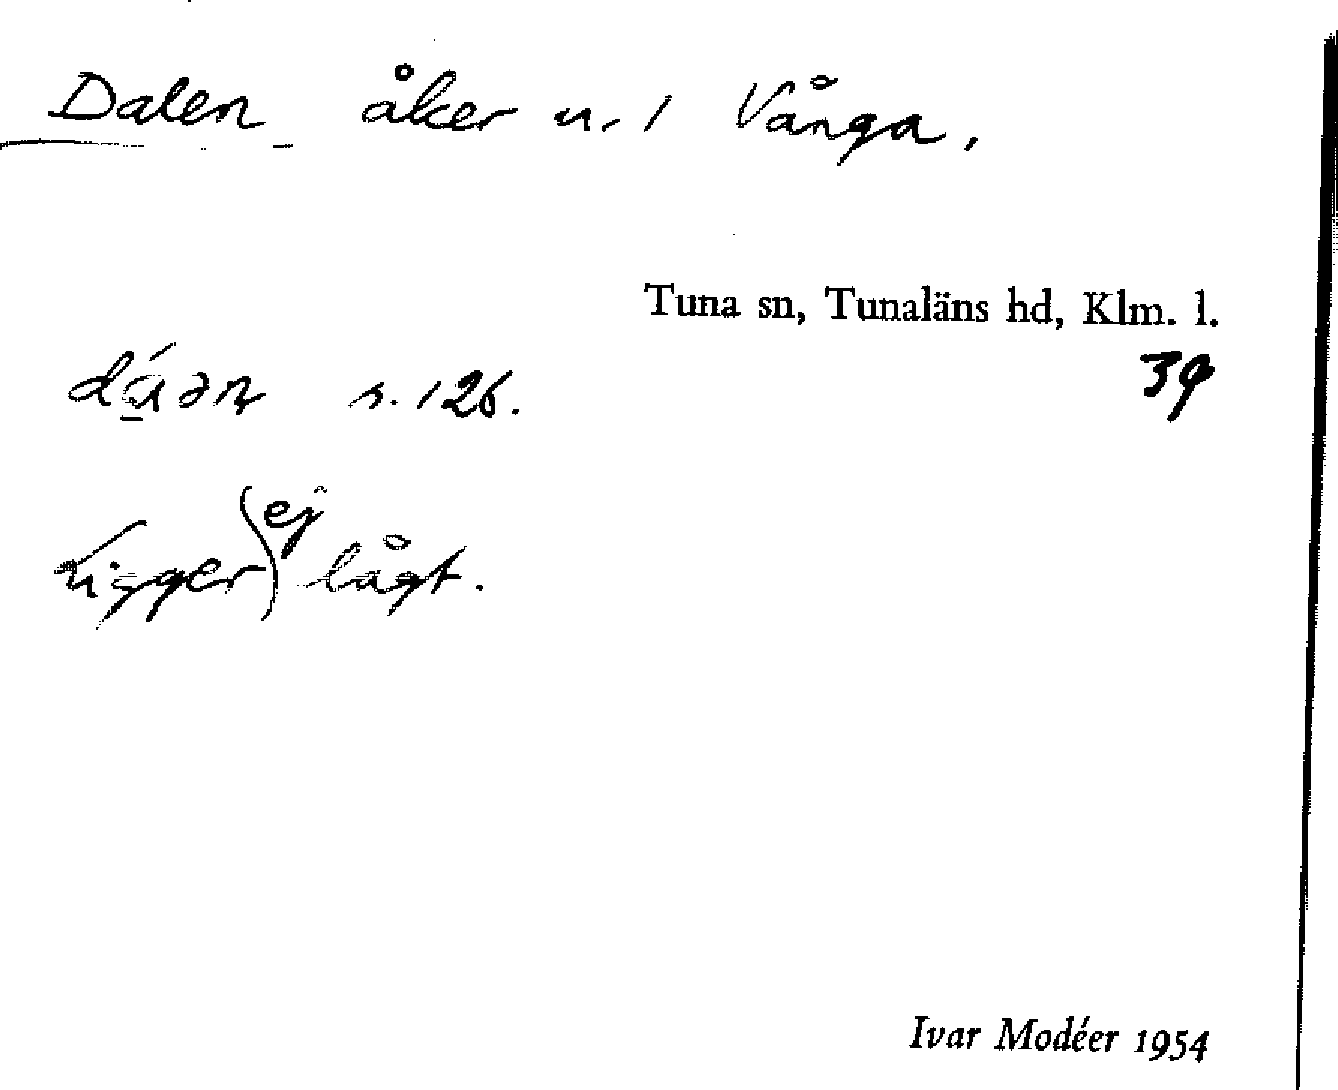 Dalen åker u. 1 Vånga,
Tuna sn, Tunaläns hd, Klm. l.
39
s. 126.
Ligger ej lågt.
Ivar Modéer 1954